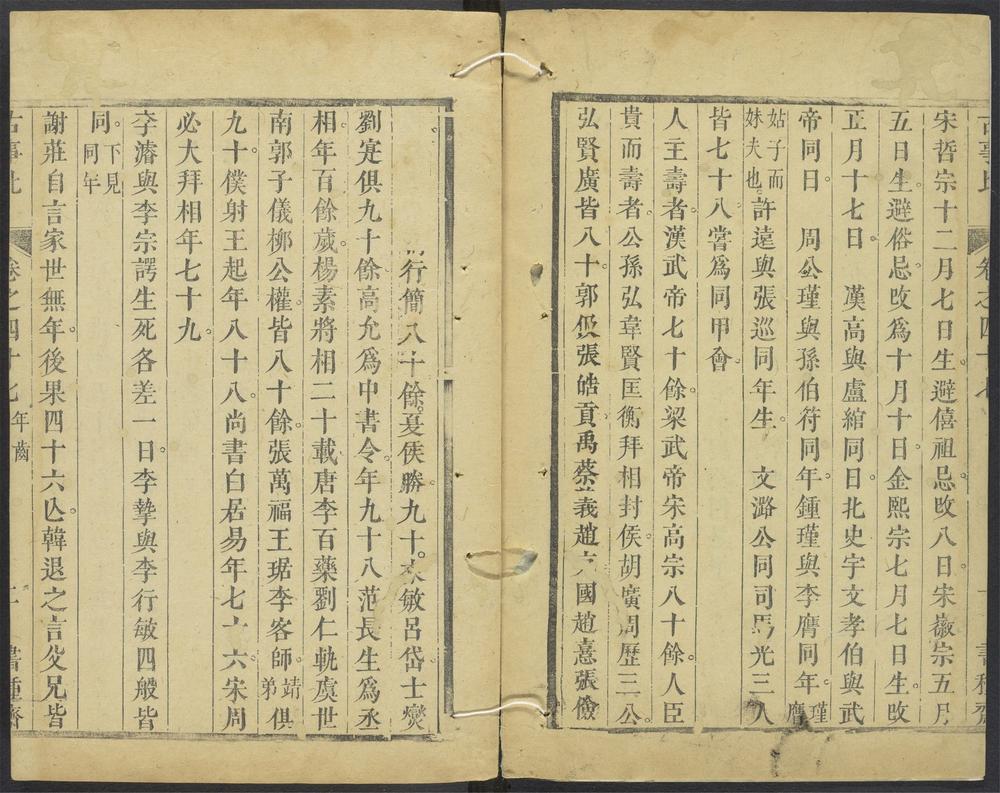 古事比
卷之四十七
書種齋
宋哲宗十二月七日生避僖祖忌改八日宋徽宗五月
五日生避俗忌改爲十月十日金熙宗七月七日生改
正月十七日　漢高與盧綰同日北史宇文孝伯與武
帝同日　周公瑾與孫伯符同年鍾瑾與李膺同年瑾膺
姑子而妹夫也許遠與張巡同年生　文潞公同司馬光三人
皆七十八嘗爲同甲會
人主壽者漢武帝七十餘梁武帝宋高宗八十餘人臣
貴而壽者公孫弘韋賢匡衡拜相封侯胡廣周歷三公
弘賢廣皆八十郭伋張皓貢禹蔡義趙充國趙憙張儉
行簡八十餘夏侯勝九十敏呂岱士燮
劉寔俱九十餘高允爲中書令年九十八范長生爲丞
相年百餘歲楊素將相二十載唐李百藥劉仁軌虞世
南郭子儀柳公權皆八十餘張萬福王琚李客師靖弟俱
九十僕射王起年八十八尚書白居易年七十六宋周
必大拜相年七十九
李濬與李宗諤生死各差一日李摯與李行敏四般皆
同下見同年
謝莊自言家世無年後果四十六亾韓退之言父兄皆
古事比
卷之四十七
年齒
書種齋